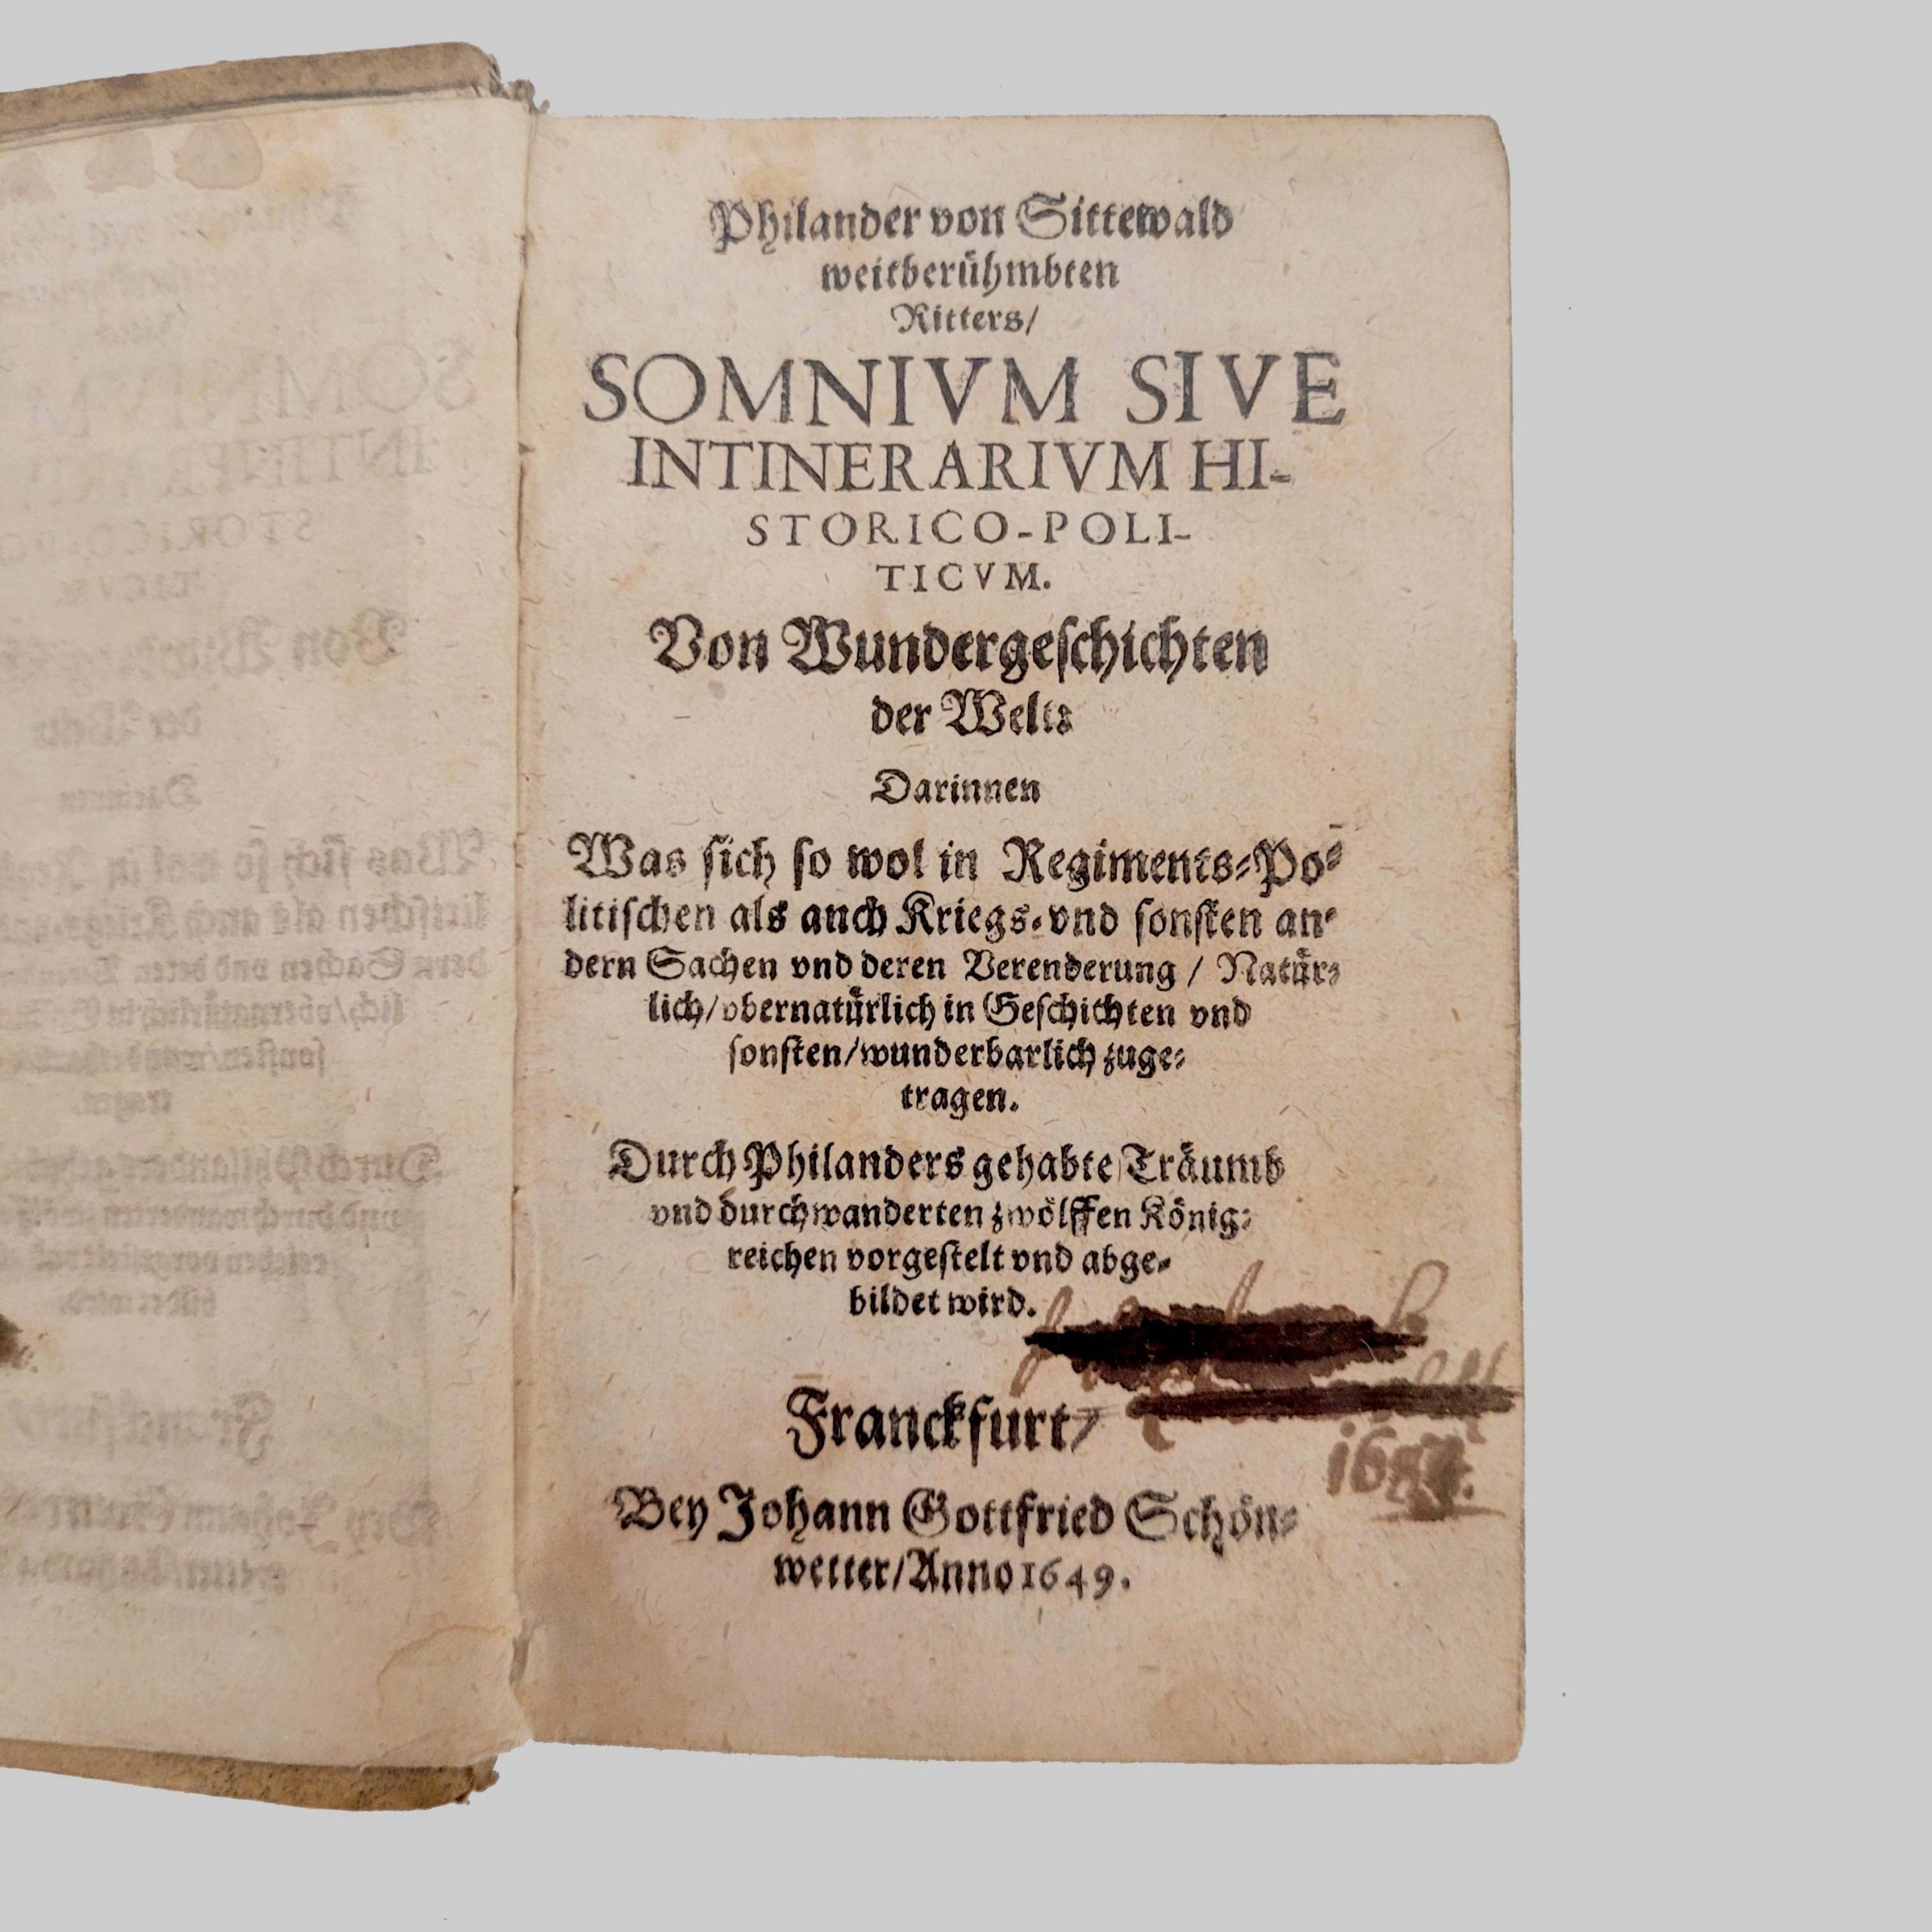 Philander von Sittewald
weitberühmbten
Ritters/
SOMNIVM SIVE
INTINERARIVM HI-
STORICO-POLI-
TICVM.
Von Wundergeſchichten
der Welt:
Darinnen
Was ſich ſo wol in Regiments-Po-
litiſchen als auch Kriegs-vnd ſonſten an-
dern Sachen vnd deren Verenderung / Natür-
lich/vbernatürlich in Geſchichten vnd
ſonſten/wunderbarlich zuge-
tragen.
Durch Philanders gehabte Träumb
vnd durchwanderten zwölffen König-
reichen vorgeſtelt vnd abge-
bildet wird.
Franckfurt/
Bey Johann Gottfried Schön-
wetter/Anno 1649.